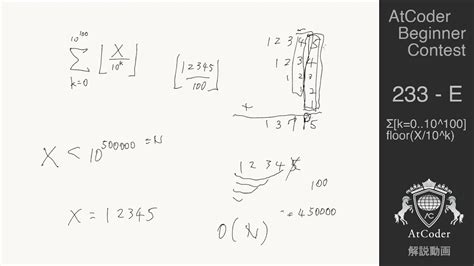 10^100
Σ ⌊X/10^k⌋
k=0
⌊12345/100⌋
1 2 3 4 5
1 2 3 4
1 2 3
1 2
1
+
1 3 7 1 5
X < 10^500000 = N
X = 1 2 3 4 5
1 2 3 4 5
100
O(N)
AtCoder
Beginner
Contest
233 - E
Σ[k=0..10^100]
floor(X/10^k)
AC
AtCoder
解説動画